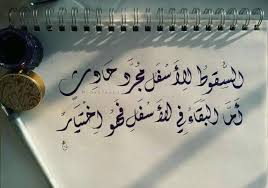 السقوط للأسفل مُجرّد حادث
أمّا البقاء في الأسفل فهو اختيار